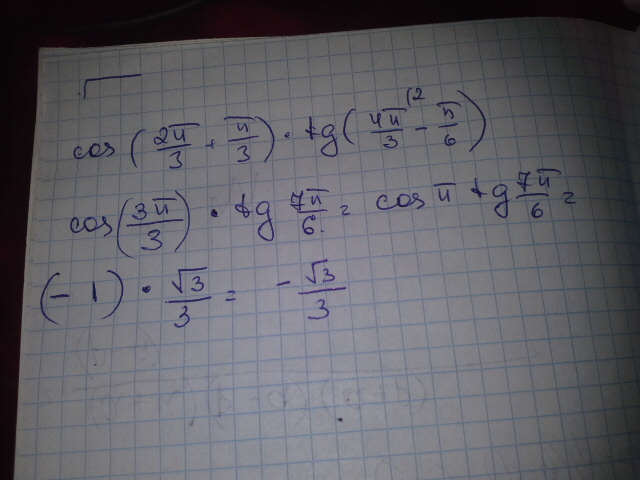 cos(2π/3 + π/3) · tg(4π/3 (2 - π/6)
cos(3π/3) · tg 7π/6 = cos π tg 7π/6 =
(-1) · √3/3 = -√3/3